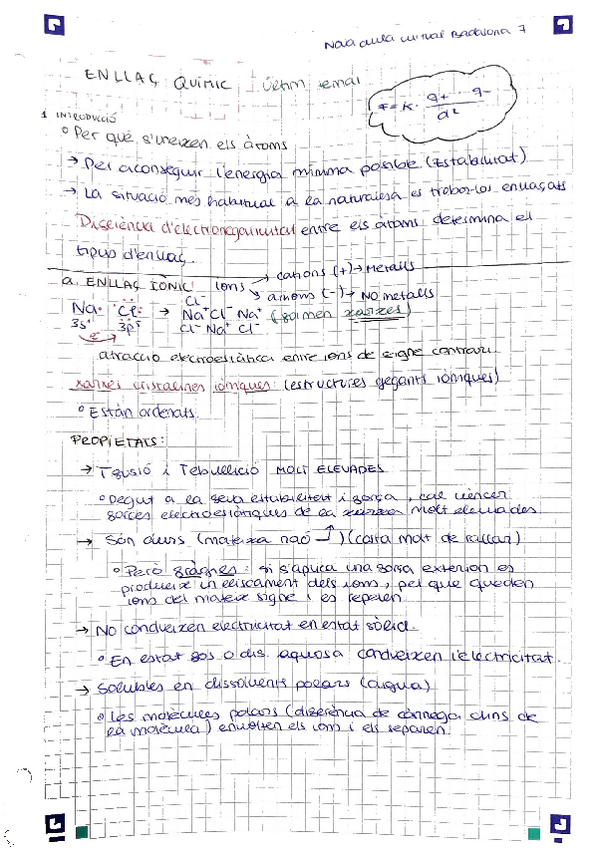 Nova aula virtual Badalona 7
ENLLAÇ QUÍMIC últim temai
F = K · q+ · q- / d²
1 INTRODUCCIÓ
° Per què s'uneixen els àtoms
→ Per aconseguir l'energia mínima possible (Estabilitat)
→ La situació més habitual a la naturalesa és trobar-los enllaçats
Diferència d'electronegativitat entre els àtoms determina el
tipus d'enllaç.
a. ENLLAÇ IÒNIC ions → cations (+) → Metalls
→ anions (-) → NO metalls
Cl⁻
Na· ·Cl: → Na⁺Cl⁻ Na⁺ (formen xarxes)
3s¹ 3p⁵ Cl⁻ Na⁺ Cl⁻
e⁻
atracció electroestàtica entre ions de signe contrari.
xarxes cristal·lines iòniques (estructures gegants iòniques)
° Están ordenats.
PROPIETATS:
→ Tfusió i Tebullició MOLT ELEVADES
° Degut a la seva estabilitat i força, cal vèncer
forces electroestàtiques de la xarxa molt elevades
→ Són durs (mateixa raó) (costa molt de ratllar)
° Però fràgils: si s'aplica una força exterior es
produeix un lliscament dels ions, pel que queden
ions del mateix signe i es repelen
→ No condueixen electricitat en estat sòlid.
° En estat fos o dis. aquosa condueixen l'electricitat.
→ Solubles en dissolvents polars (aigua)
° Les molècules polars (diferència de càrrega dins de
la molècula) envolten els ions i els separen.